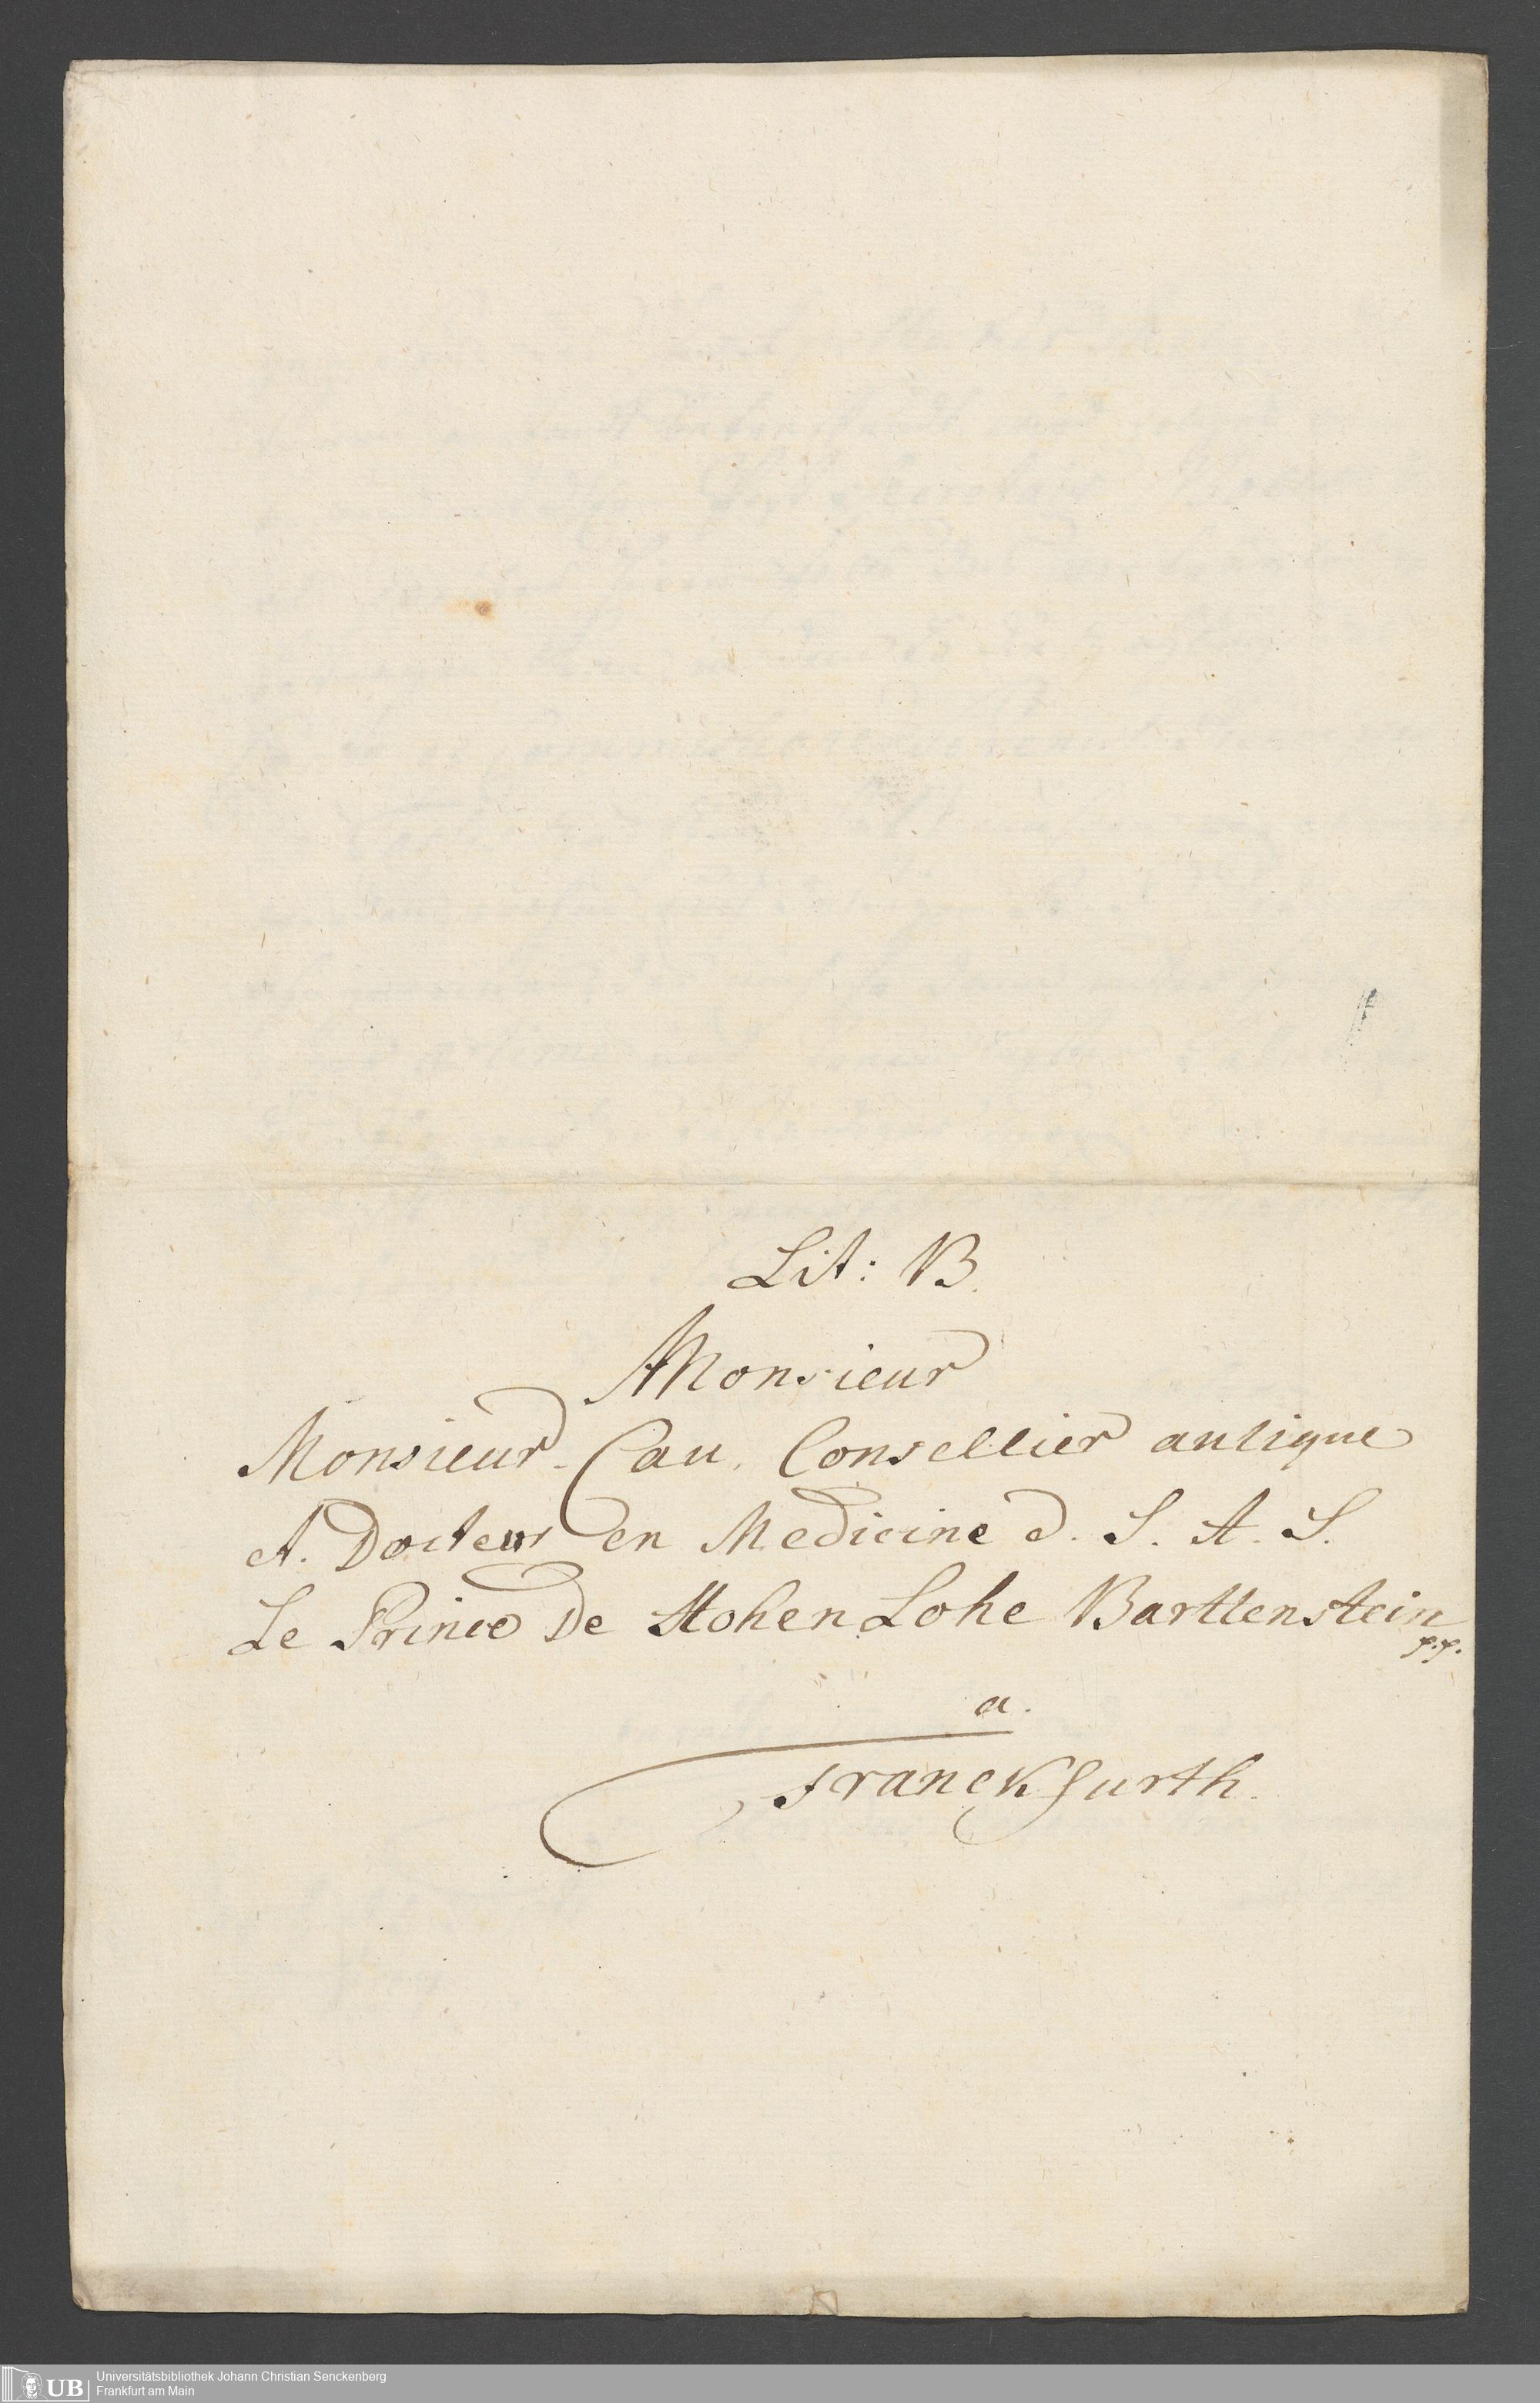 Lit: B.
Monsieur
Monsieur Cau. Consellier aulique
et. Docteur en Medicine d. S. A. S.
Le Prince De Hohen Lohe Barttenstein
p.p.
a.
Franckfurth.
UB
Universitätsbibliothek Johann Christian Senckenberg
Frankfurt am Main